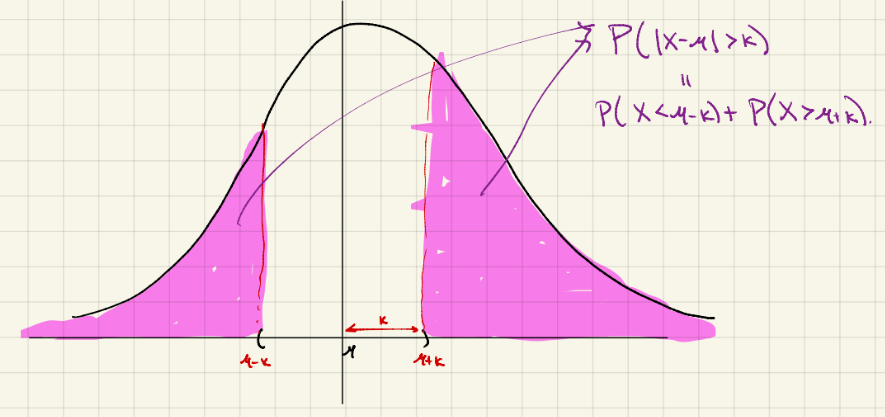 P(|X-μ|>k)
=
P(X<μ-k)+P(X>μ+k).
k
μ-k
μ
μ+k